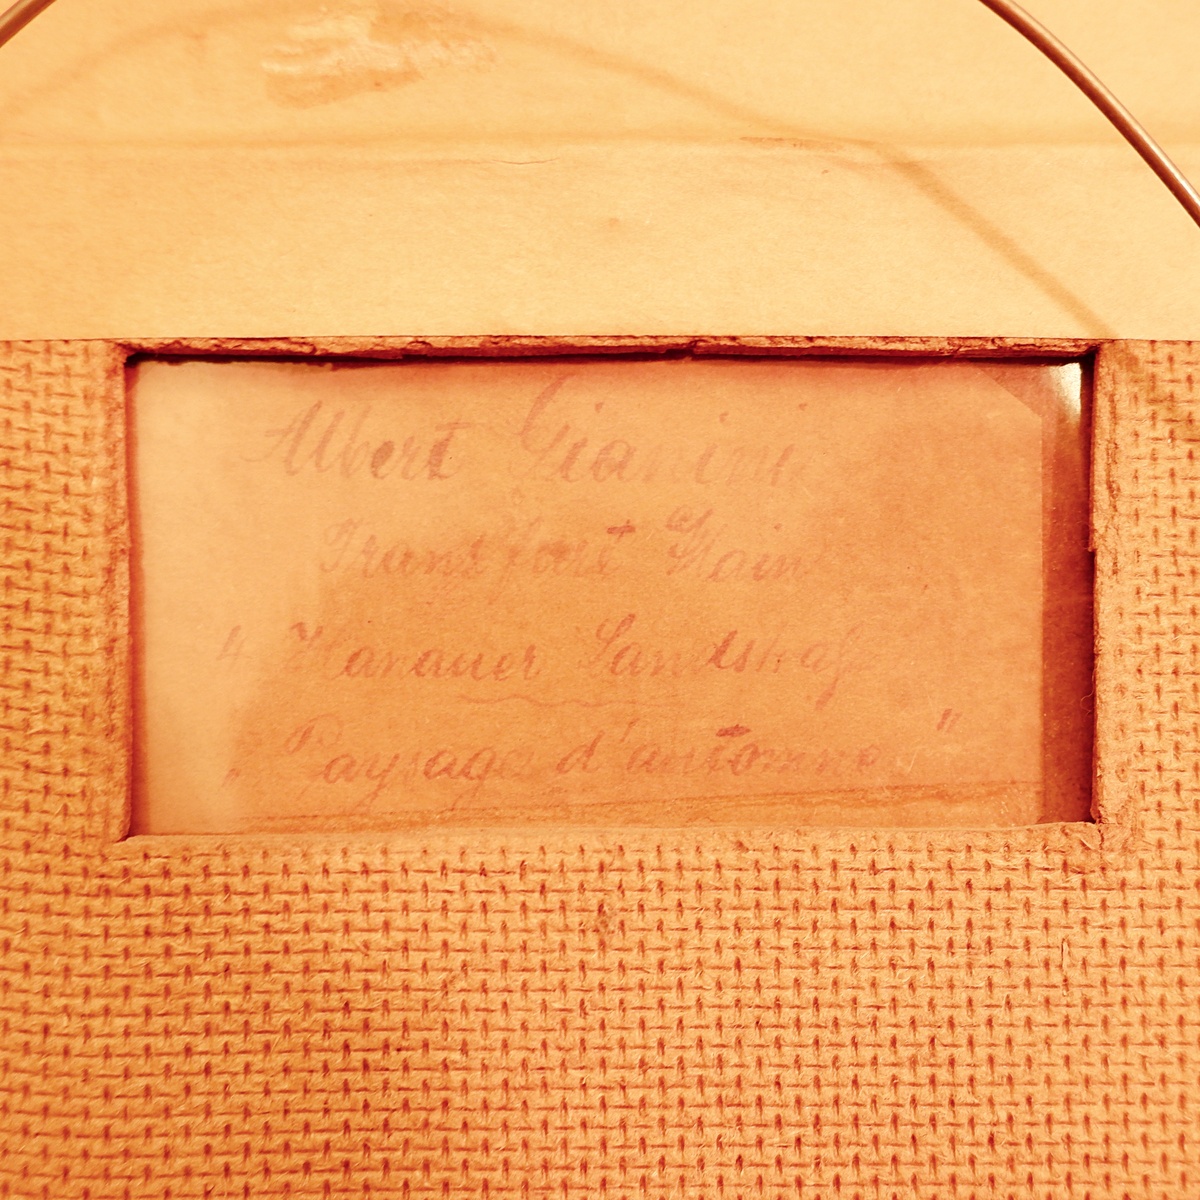 Albert Gianini
Frankfort Main
4 Hanauer Landstraß
" Paysage d'automne "